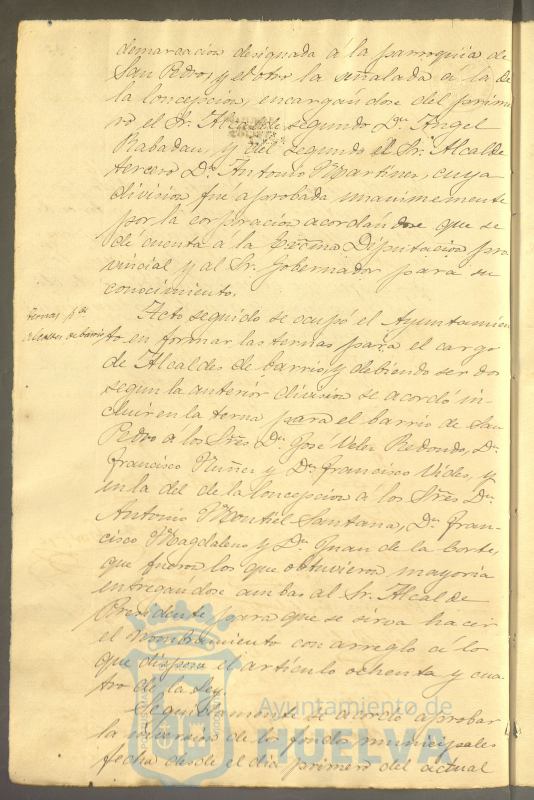 demarcacion designada á la parroquia de
San Pedro, y el otro la señalada á la de
la Concepcion, encargandose del prime-
ro el Sr. Alcalde segundo Dn. Angel
Rabadan, y del segundo el Sr. Alcalde
tercero Dn. Antonio Martinez, cuya
division fue aprobada unanimemente
por la corporacion acordandose que se
dé cuenta a la Excma Diputacion pro-
vincial y al Sr. Gobernador para su
conocimiento.
Ternas pa.
Alcaldes de barrio
Acto seguido se ocupó el Ayuntamien-
to en formar las ternas para el cargo
de Alcaldes de barrio, y debiendo ser dos
segun la anterior division se acordó in-
cluir en la terna para el barrio de San
Pedro a los Sres Dn. José Velez Redondo, Dn.
Francisco Nuñez y Dn. Francisco Vides, y
en la del de la Concepcion á los Sres Dn.
Antonio Montiel Santana, Dn. Fran-
cisco Magdaleno y Dn. Juan de la Corte,
que fueron los que obtuvieron mayoria
entregandose ambas al Sr. Alcalde
Presidente para que se sirva hacer
el nombramiento con arreglo a lo
que dispone el artículo ochenta y cua-
tro de la Ley.
Seguidamente se acordó aprobar
la inversion de los fondos municipales
fecha desde el dia primero del actual
Ayuntamiento de
HUELVA